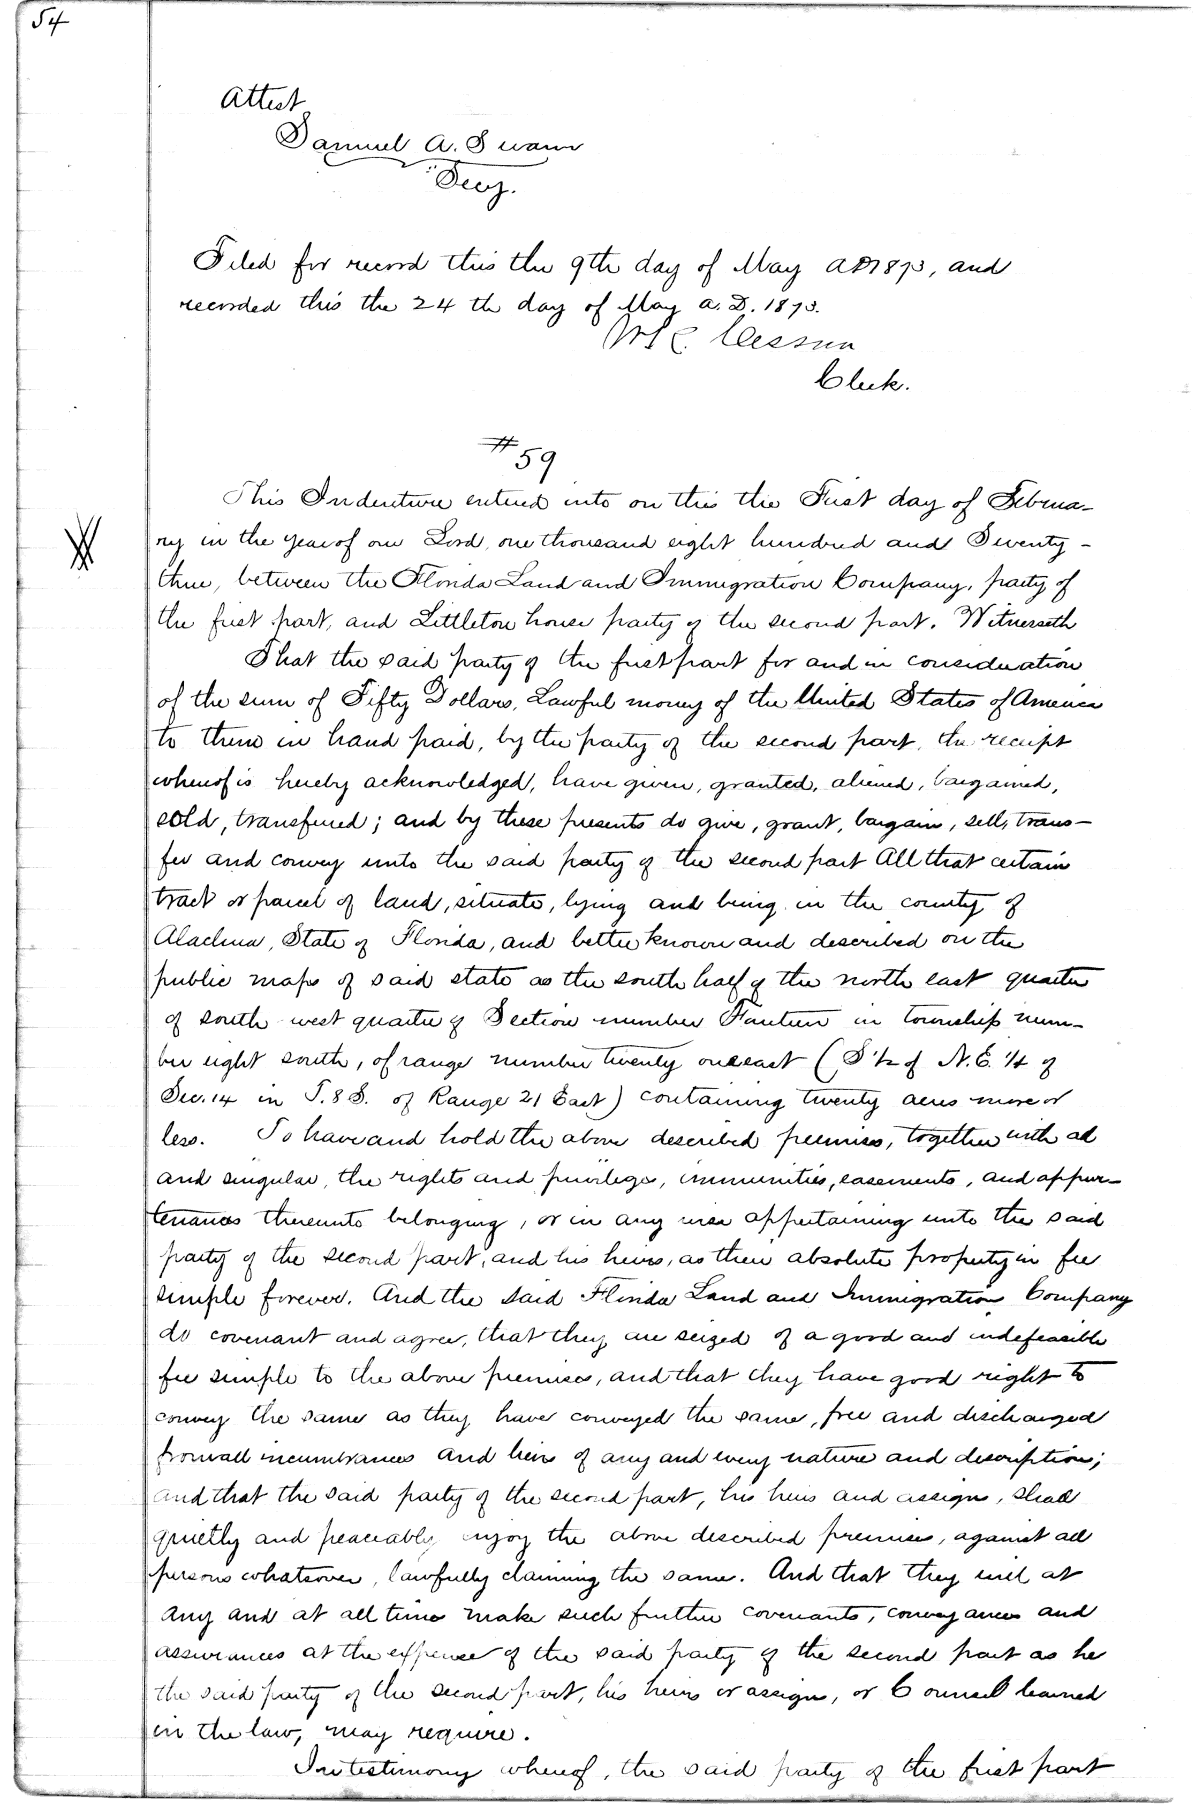 54
Attest
Samuel A. Swann
Secy.
Filed for record this the 9th day of May AD 1873, and
recorded this the 24th day of May A.D. 1873.
Cessna
Clerk.
#59
This Indenture entered into on this the First day of Februa-
ry in the year of our Lord, one thousand eight hundred and Seventy-
three, between the Florida Land and Immigration Company, party of
the first part, and Littleton house party of the second part. Witnesseth
That the said party of the first part for and in consideration
of the sum of Fifty Dollars, Lawful money of the United States of America
to them in hand paid, by the party of the second part, the receipt
whereof is hereby acknowledged, have given, granted, aliened, bargained,
sold, transferred; and by these presents do give, grant, bargain, sell, trans-
fer and convey unto the said party of the second part All that certain
tract or parcel of land, situate, lying and being in the county of
Alachua, State of Florida, and better known and described on the
public maps of said state as the south half of the north east quarter
of south-west quarter of Section number Fourteen in township num-
ber eight south, of range number twenty one east (S 1/2 of N.E. 1/4 of
Sec. 14 in T. 8 S. of Range 21 East) containing twenty acres more or
less. To have and hold the above described premises, together with all
and singular, the rights and privileges, immunities, easements, and appur-
tenances thereunto belonging, or in any wise appertaining unto the said
party of the second part, and his heirs, as their absolute property in fee
simple forever. And the said Florida Land and Immigration Company
do covenant and agree, that they are seized of a good and indefeasible
fee simple to the above premises, and that they have good right to
convey the same as they have conveyed the same, free and discharged
from all incumbrances and liens of any and every nature and description;
and that the said party of the second part, his heirs and assigns, shall
quietly and peaceably enjoy the above described premises, against all
persons whatsover, lawfully claiming the same. And that they will at
any and at all times make such further covenants, conveyances and
assurances at the expense of the said party of the second part as he
the said party of the second part, his heirs or assigns, or Counsel learned
in the law, may require.
In testimony whereof, the said party of the first part